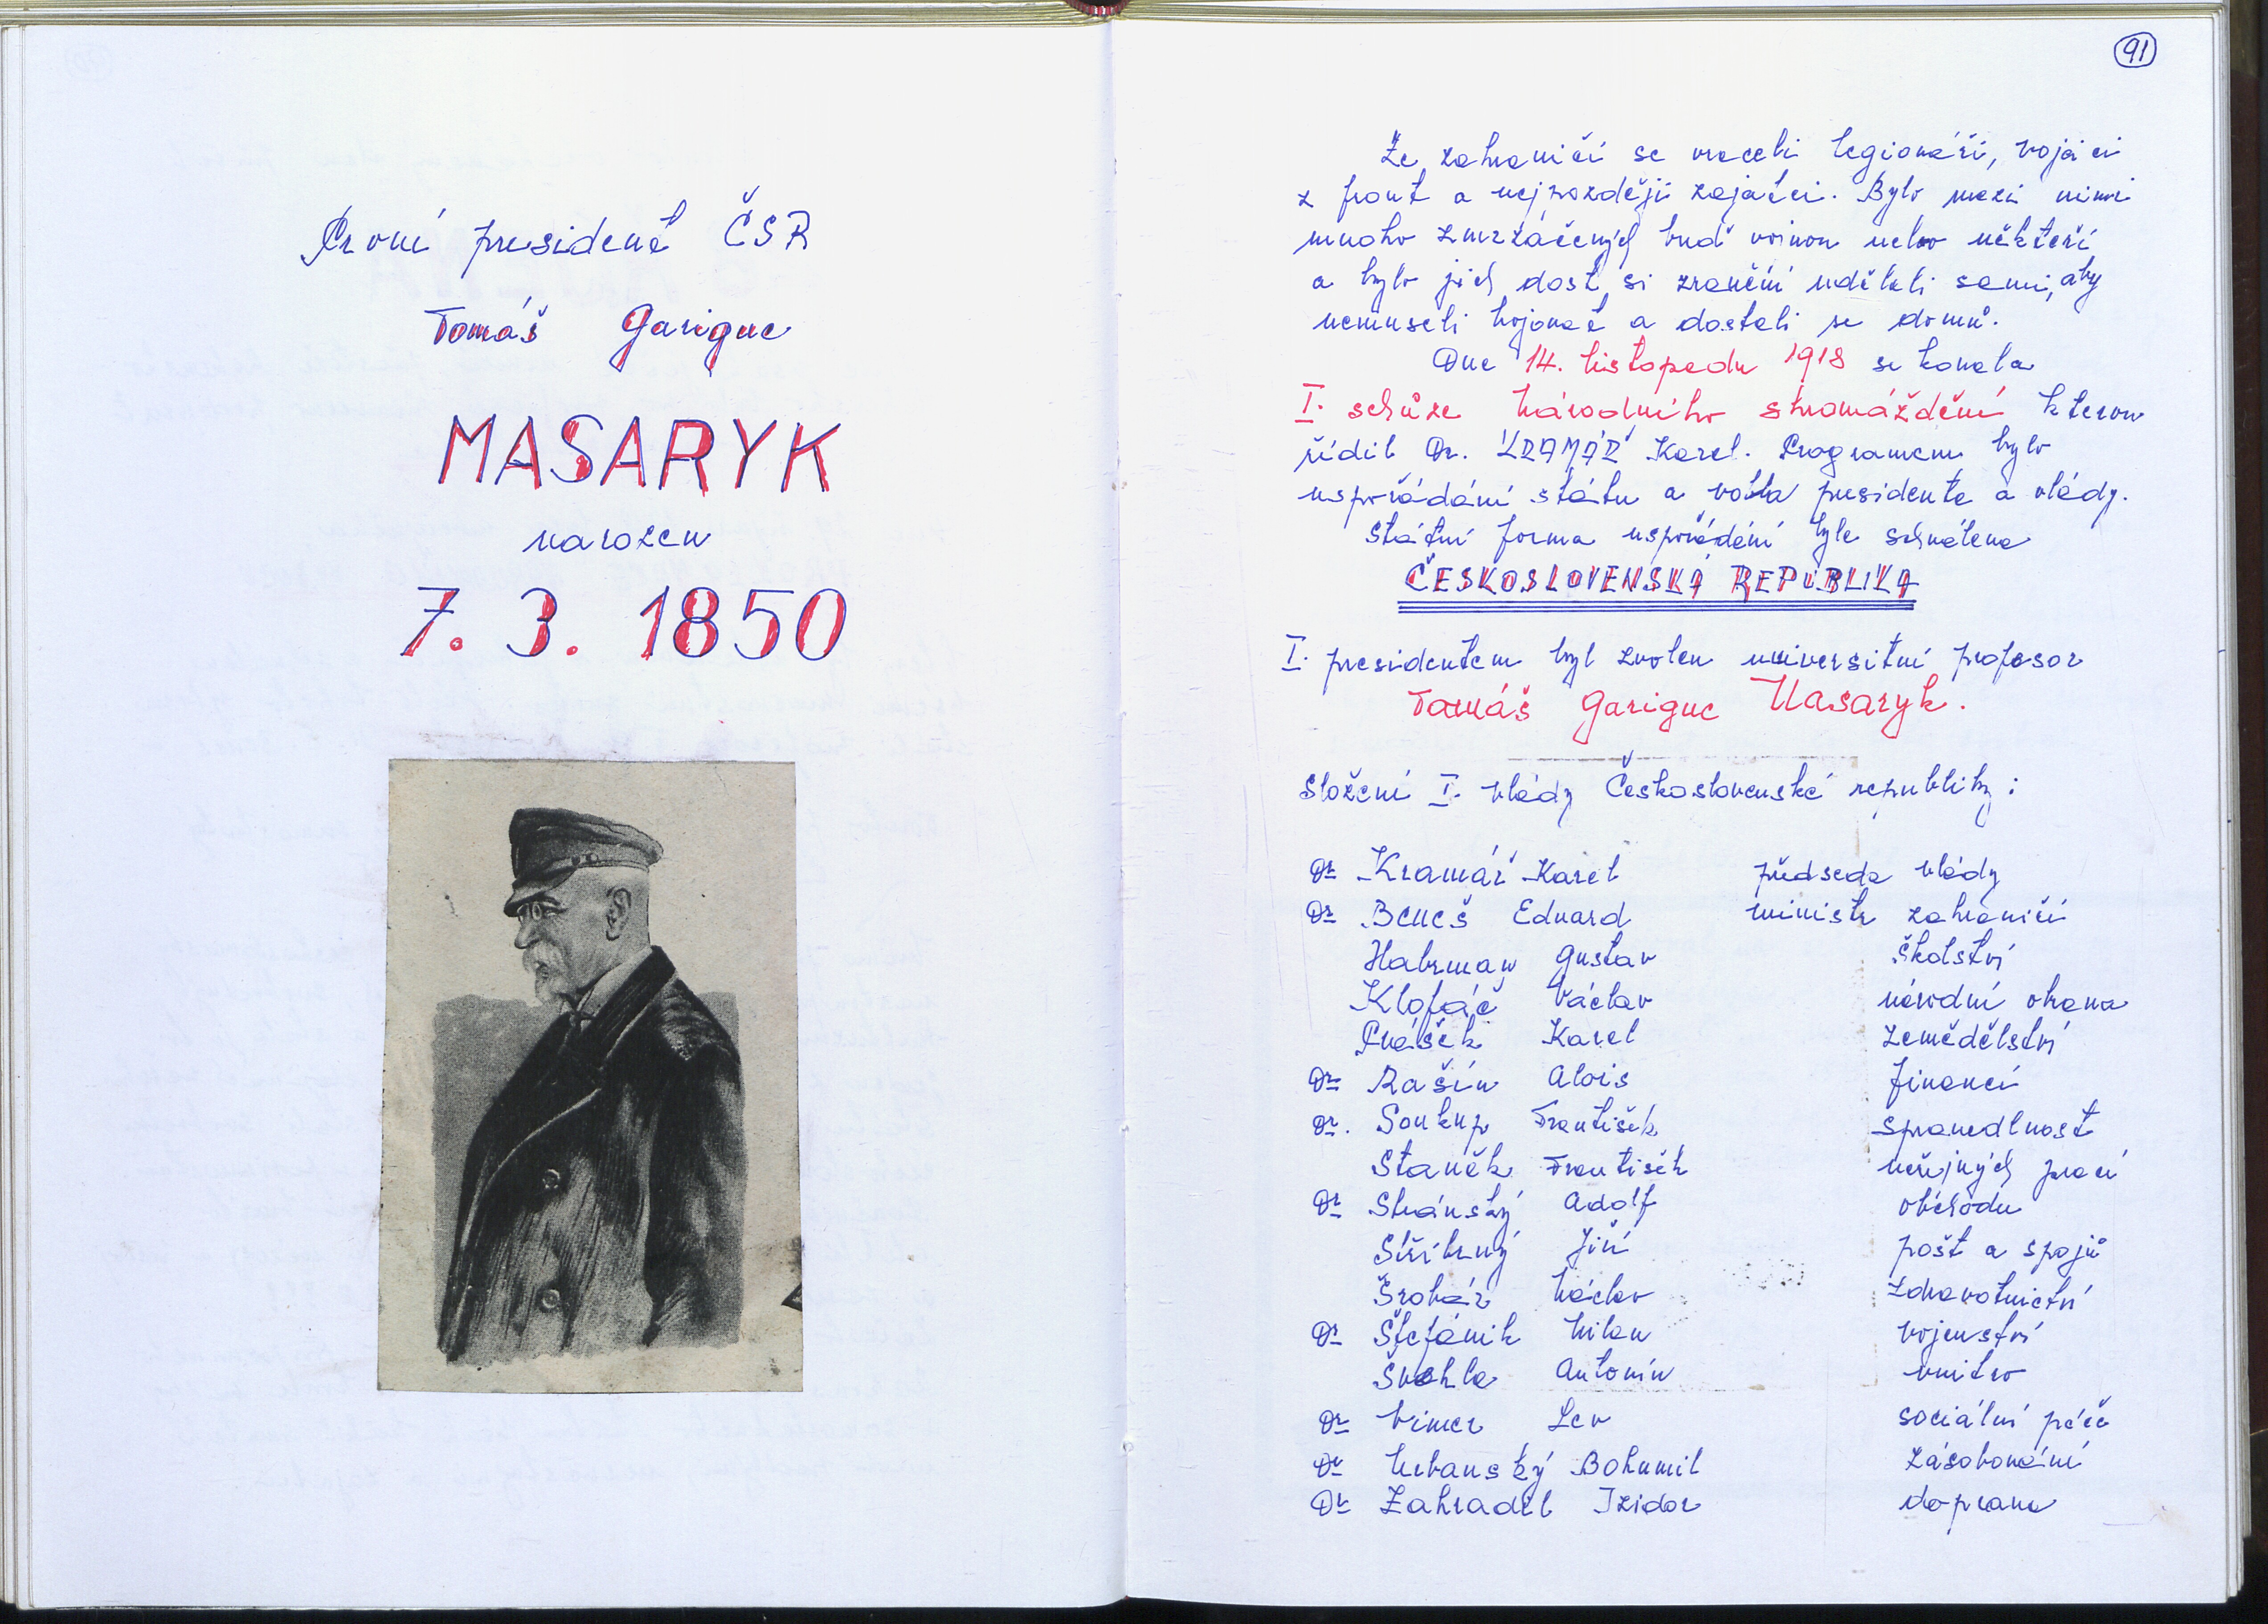 První president ČSR
Tomáš Garigue
MASARYK
narozen
7. 3. 1850
91
Ze zahraničí se vraceli legionáři, vojáci
z front a nejpozději zajatci. Bylo mezi nimi
mnoho zmrzačených buď vojnou nebo někteří
a bylo jich dost, si zranění udělali sami, aby
nemuseli bojovat a dostali se domů.
Dne 14. listopadu 1918 se konala
I. schůze Národního shromáždění kterou
řídil Dr. KRAMÁŘ Karel. Programem bylo
uspořádání státu a volba presidenta a vlády.
Státní forma uspořádání byla schválena
ČESKOSLOVENSKÁ REPUBLIKA
I. presidentem byl zvolen universitní profesor
Tomáš Garigue Masaryk.
Složení I. vlády Československé republiky:
Dr Kramář Karel předseda vlády
Dr Beneš Eduard ministr zahraničí
Habrman Gustav školství
Klofáč Václav národní obrana
Prášek Karel zemědělství
Dr Rašín Alois financí
Dr. Soukup František spravedlnost
Staněk František veřejných prací
Dr Stránský Adolf obchodu
Stříbrný Jiří pošt a spojů
Šrobár Václav zdravotnictví
Dr Štefánik Milan vojenství
Švehla Antonín vnitro
Dr Vinter Lev sociální péče
Dr Vrbanský Bohumil zásobování
Dr Zahradil Izidor doprava